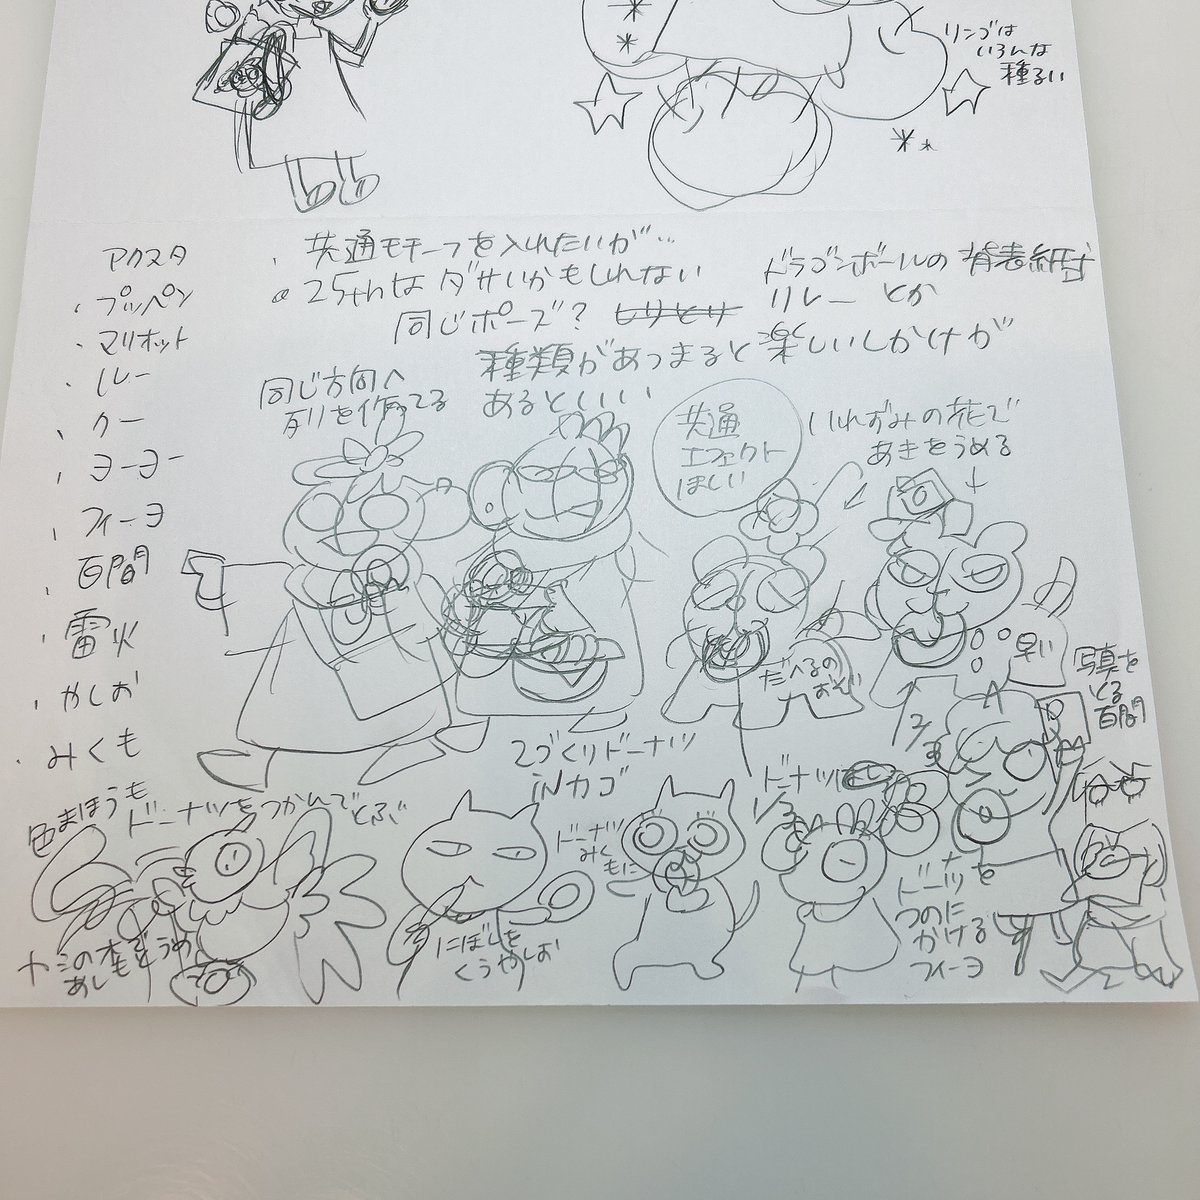 リンゴは
いろんな
種るい
アクスタ
・プッペン
・マリオット
・ルー
・クー
・ヨーヨー
・フィーヨ
・百間
・雷火
・やしお
・みくも
・共通モチーフを入れたいが…
25thはダサいかもしれない
同じポーズ?
ドラゴンボールの背表紙
リレーとか
種類があつまると楽しいしかけが
あるといい
同じ方向へ
列を作ってる
共通
エフェクト
ほしい
いれずみの花で
あきをうめる
だべるの
おそ
早い
写真を
とる
百間
2づくりドーナツ
inカゴ
色まほうも
ドーナツをつかんでとぶ
ヤシの木でもうめ
あし
にぼしを
くうやしお
ドーナツ
みく
もに
ドーナツ
ドーナツを
つのに
かける
フィーヨ